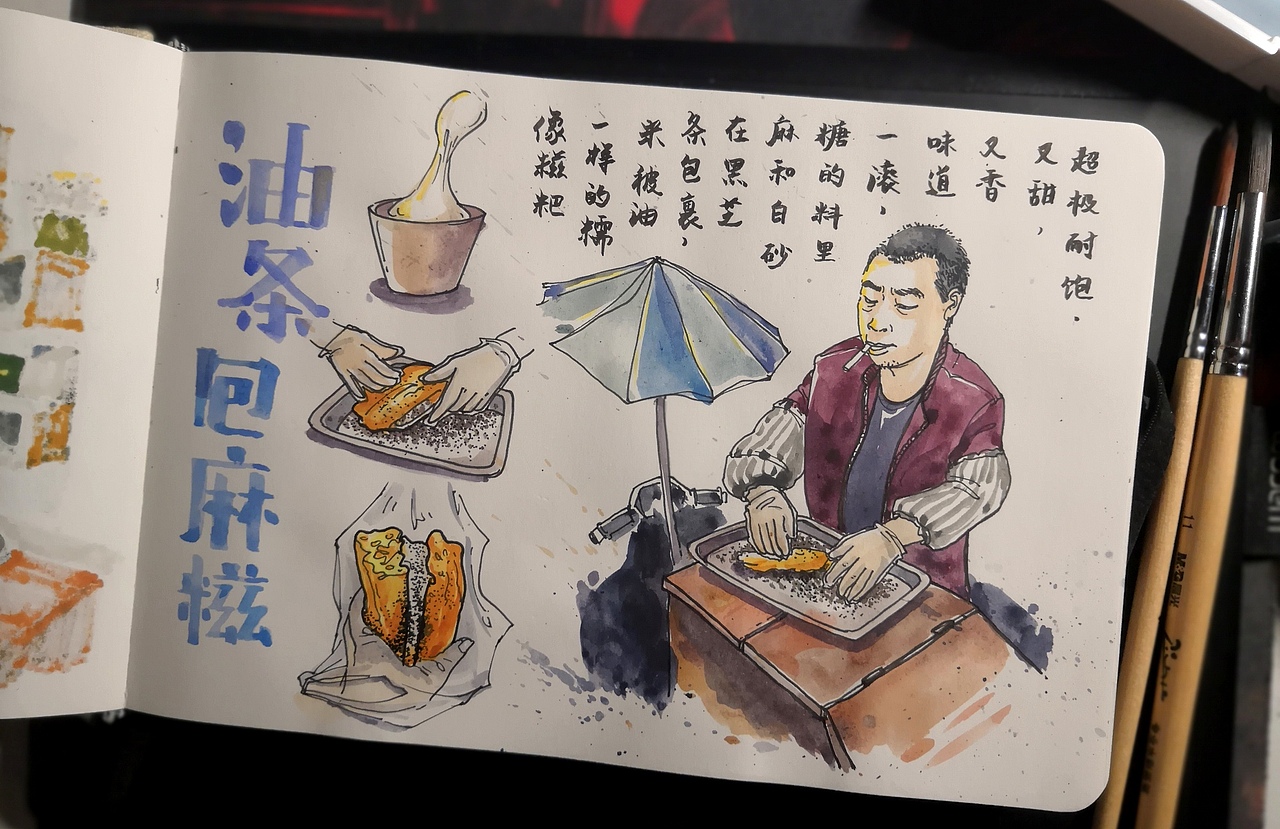 油条包麻糍
像糍粑
一样的糯
米被油
条包裹，
在黑芝
麻和白砂
糖的料里
一滚，
味道
又香
又甜，
超极耐饱.
11